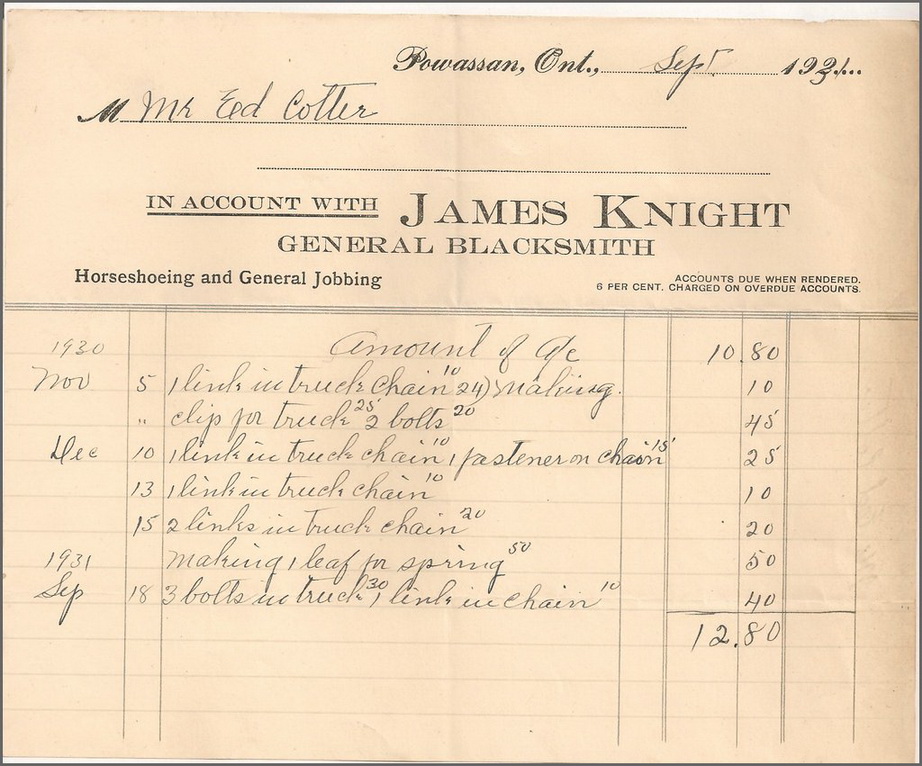 Powassan, Ont., Sept 1931
M Mr Ed Cotter
IN ACCOUNT WITH JAMES KNIGHT
GENERAL BLACKSMITH
Horseshoeing and General Jobbing
ACCOUNTS DUE WHEN RENDERED.
6 PER CENT. CHARGED ON OVERDUE ACCOUNTS.
1930 Amount of a/c 10.80
Nov 5 1 link in truck chain 10 24) making. 10
" clip for truck 25 2 bolts 20 45
Dec 10 1 link in truck chain 10 1 fastener on chain 15 25
13 1 link in truck chain 10 10
15 2 links in truck chain 20 20
1931 making 1 leaf for spring 50 50
Sep 18 3 bolts in truck 30 1 link in chain 10 40
12.80